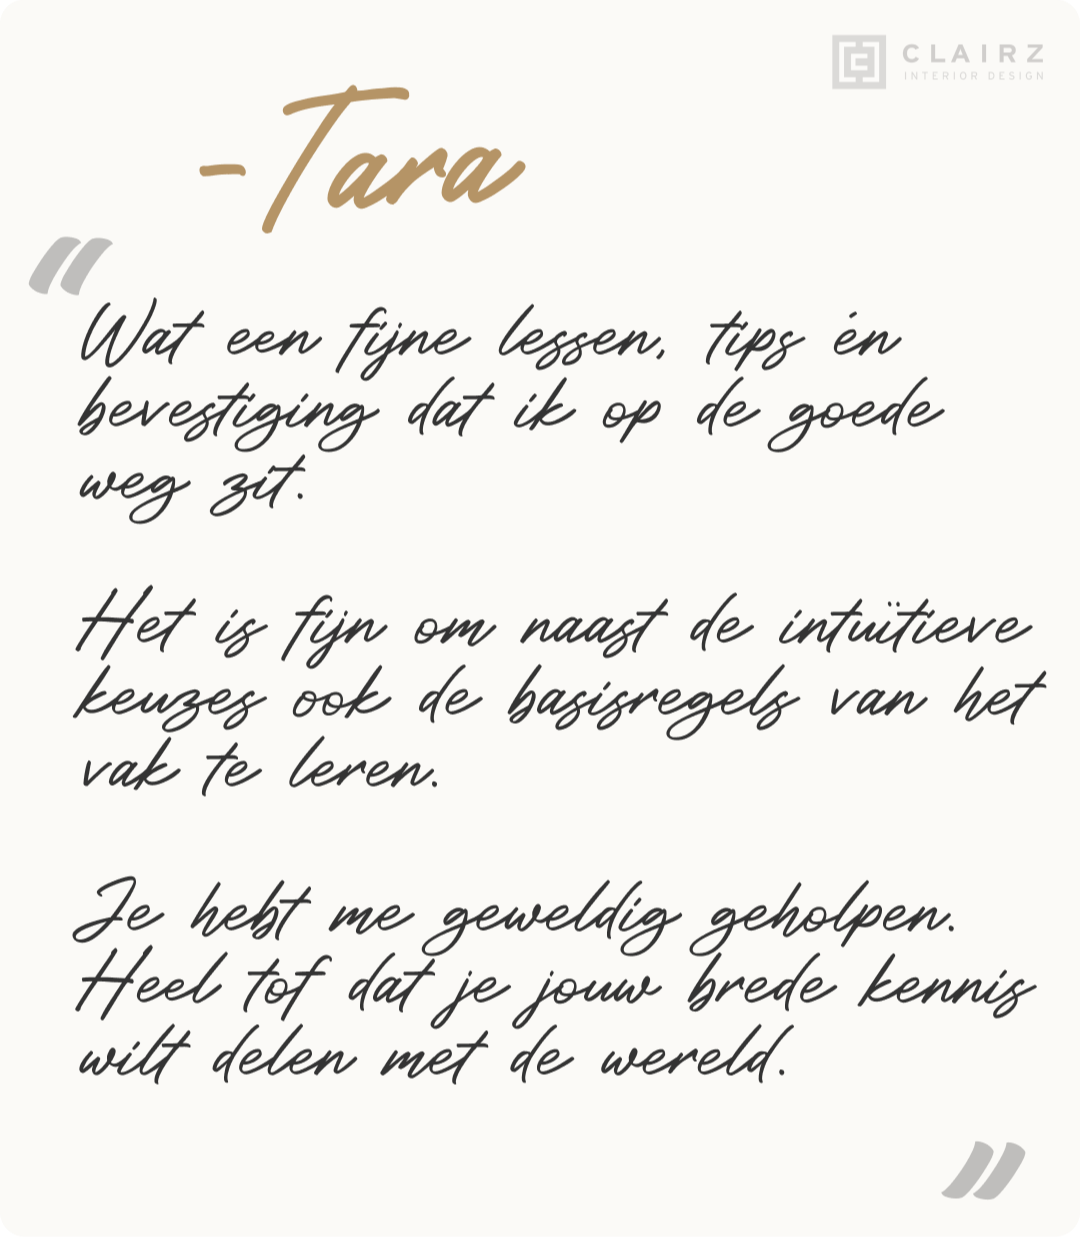 CLAIRZ
INTERIOR DESIGN
-Tara
“
Wat een fijne lessen, tips én
bevestiging dat ik op de goede
weg zit.
Het is fijn om naast de intuïtieve
keuzes ook de basisregels van het
vak te leren.
Je hebt me geweldig geholpen.
Heel tof dat je jouw brede kennis
wilt delen met de wereld.
”